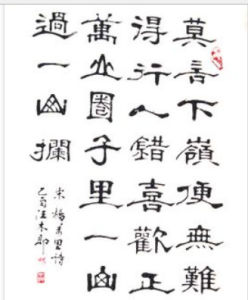 莫言下嶺便無難
得行人錯喜歡正
萬山圈子里一山
過一山攔
宋楊萬里詩